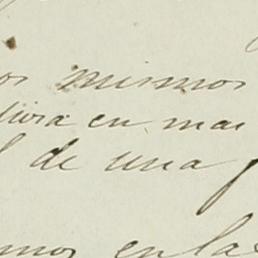 os mismos
en mas
de una
mos en las